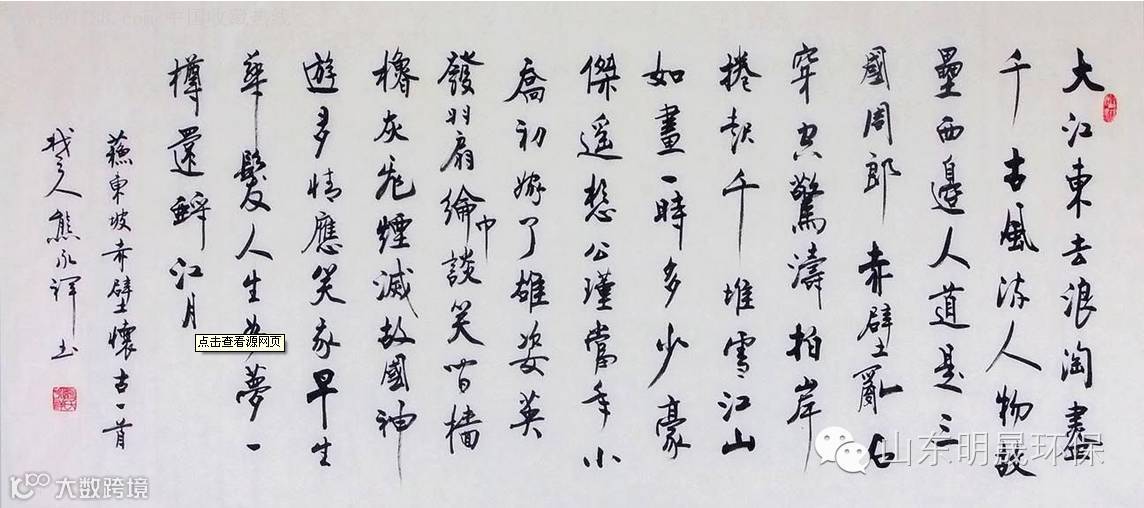 大江東去浪淘盡
千古風流人物故
壘西邊人道是三
國周郎赤壁亂石
穿空驚濤拍岸
捲起千堆雪江山
如畫一時多少豪
傑遥想公瑾當年小
喬初嫁了雄姿英
發羽扇綸巾談笑間檣
櫓灰飛煙滅故國神
遊多情應笑我早生
華髮人生如夢一
樽還酹江月
蘇東坡赤壁懷古一首
人熊永
点击查看源网页
山东明晟环保
大数跨境